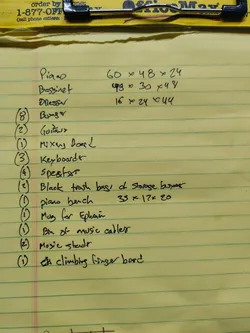 order by
1-877-OFF OfficeMax
Call phone orders
Piano 60 x 48 x 24
Bassinet 48 x 30 x 48
Dresser 16 x 24 x 44
(8) Boxes
(2) Guitars
(1) Mixing Board
(3) Keyboards
(4) Speakers
(2) Black trash bags of storage
(1) piano bench 35 x 17 x 20
(1) for Ephraim
(1) Bin of music cables
(2) Music stands
(1) climbing finger board